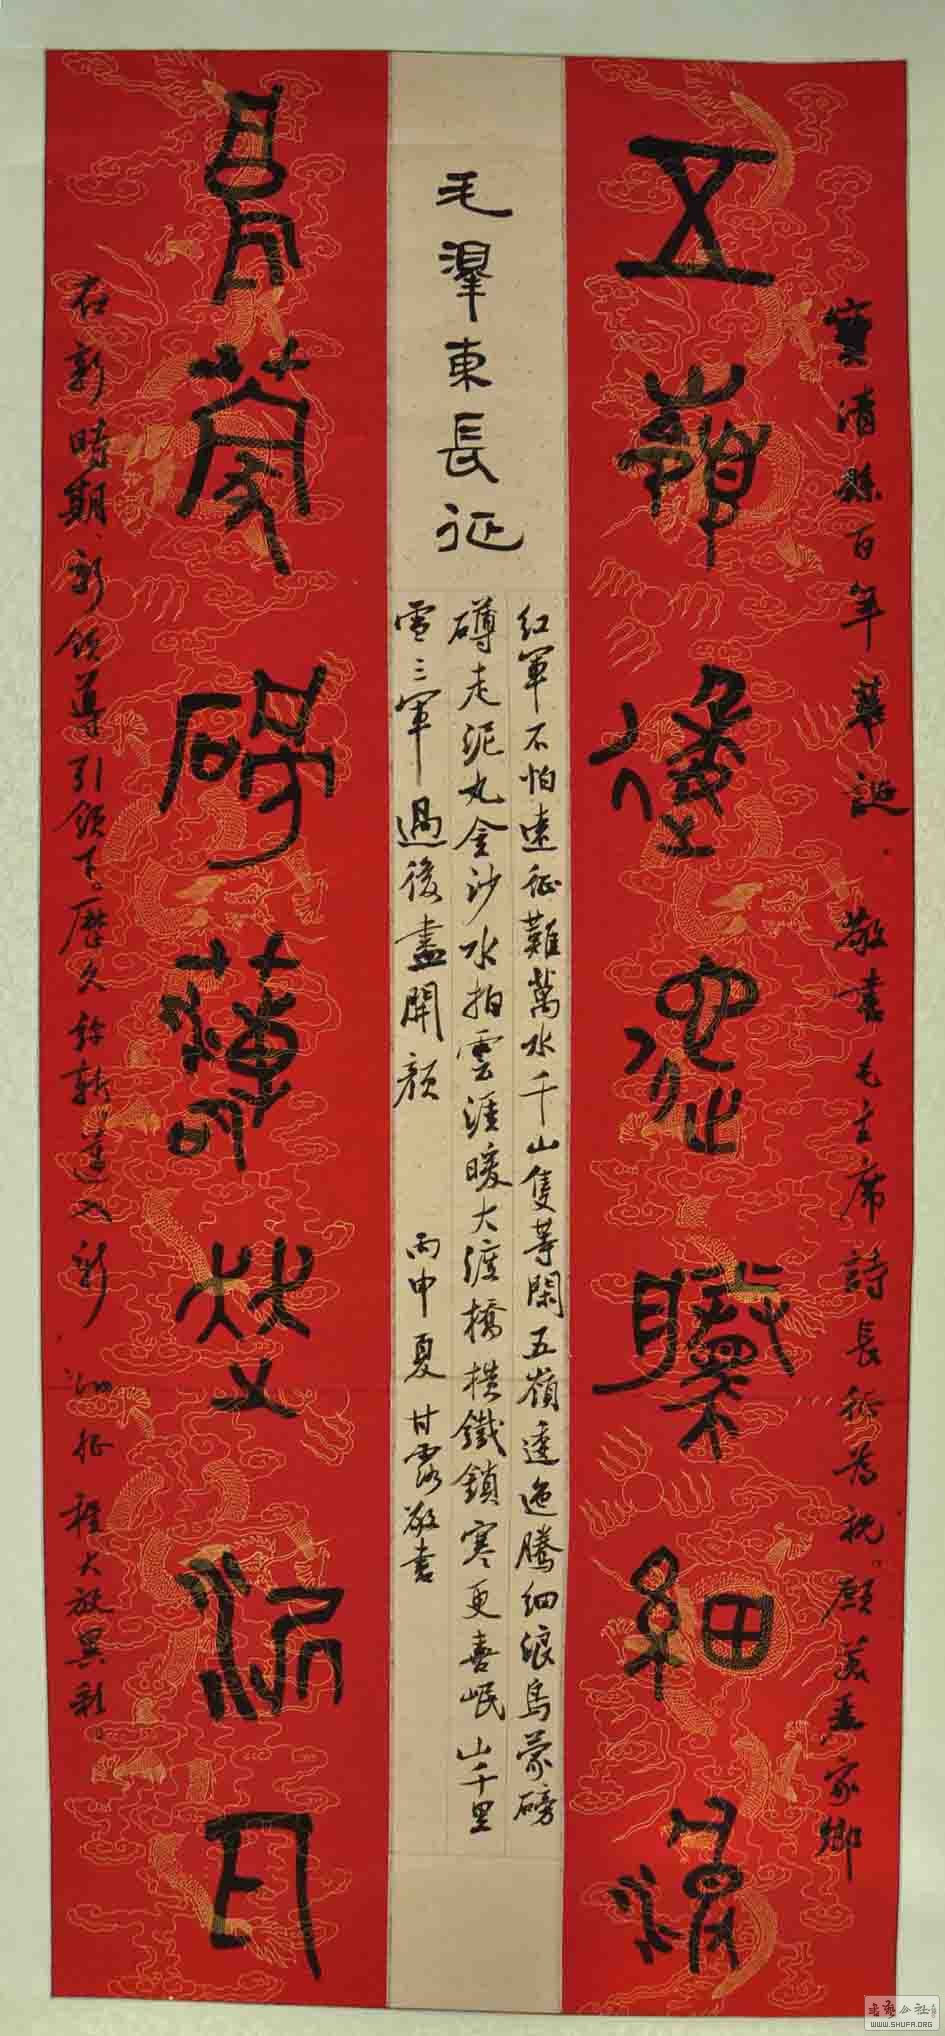 寶清縣百年華誕 敬書毛主席詩長征為祝。願美麗家鄉
五嶺逶迤騰細浪
毛澤東長征
紅軍不怕遠征難萬水千山隻等閑五嶺逶迤騰細浪烏蒙磅
礡走泥丸金沙水拍雲涯暖大渡橋橫鐵鎖寒更喜岷山千里
雪三軍過後盡開顏 丙申夏 甘露敬書
烏蒙磅礴走泥丸
在新時期、新領導引領下。歷久弥新邁入新的征程大放異彩。
WWW.SHUFA.ORG